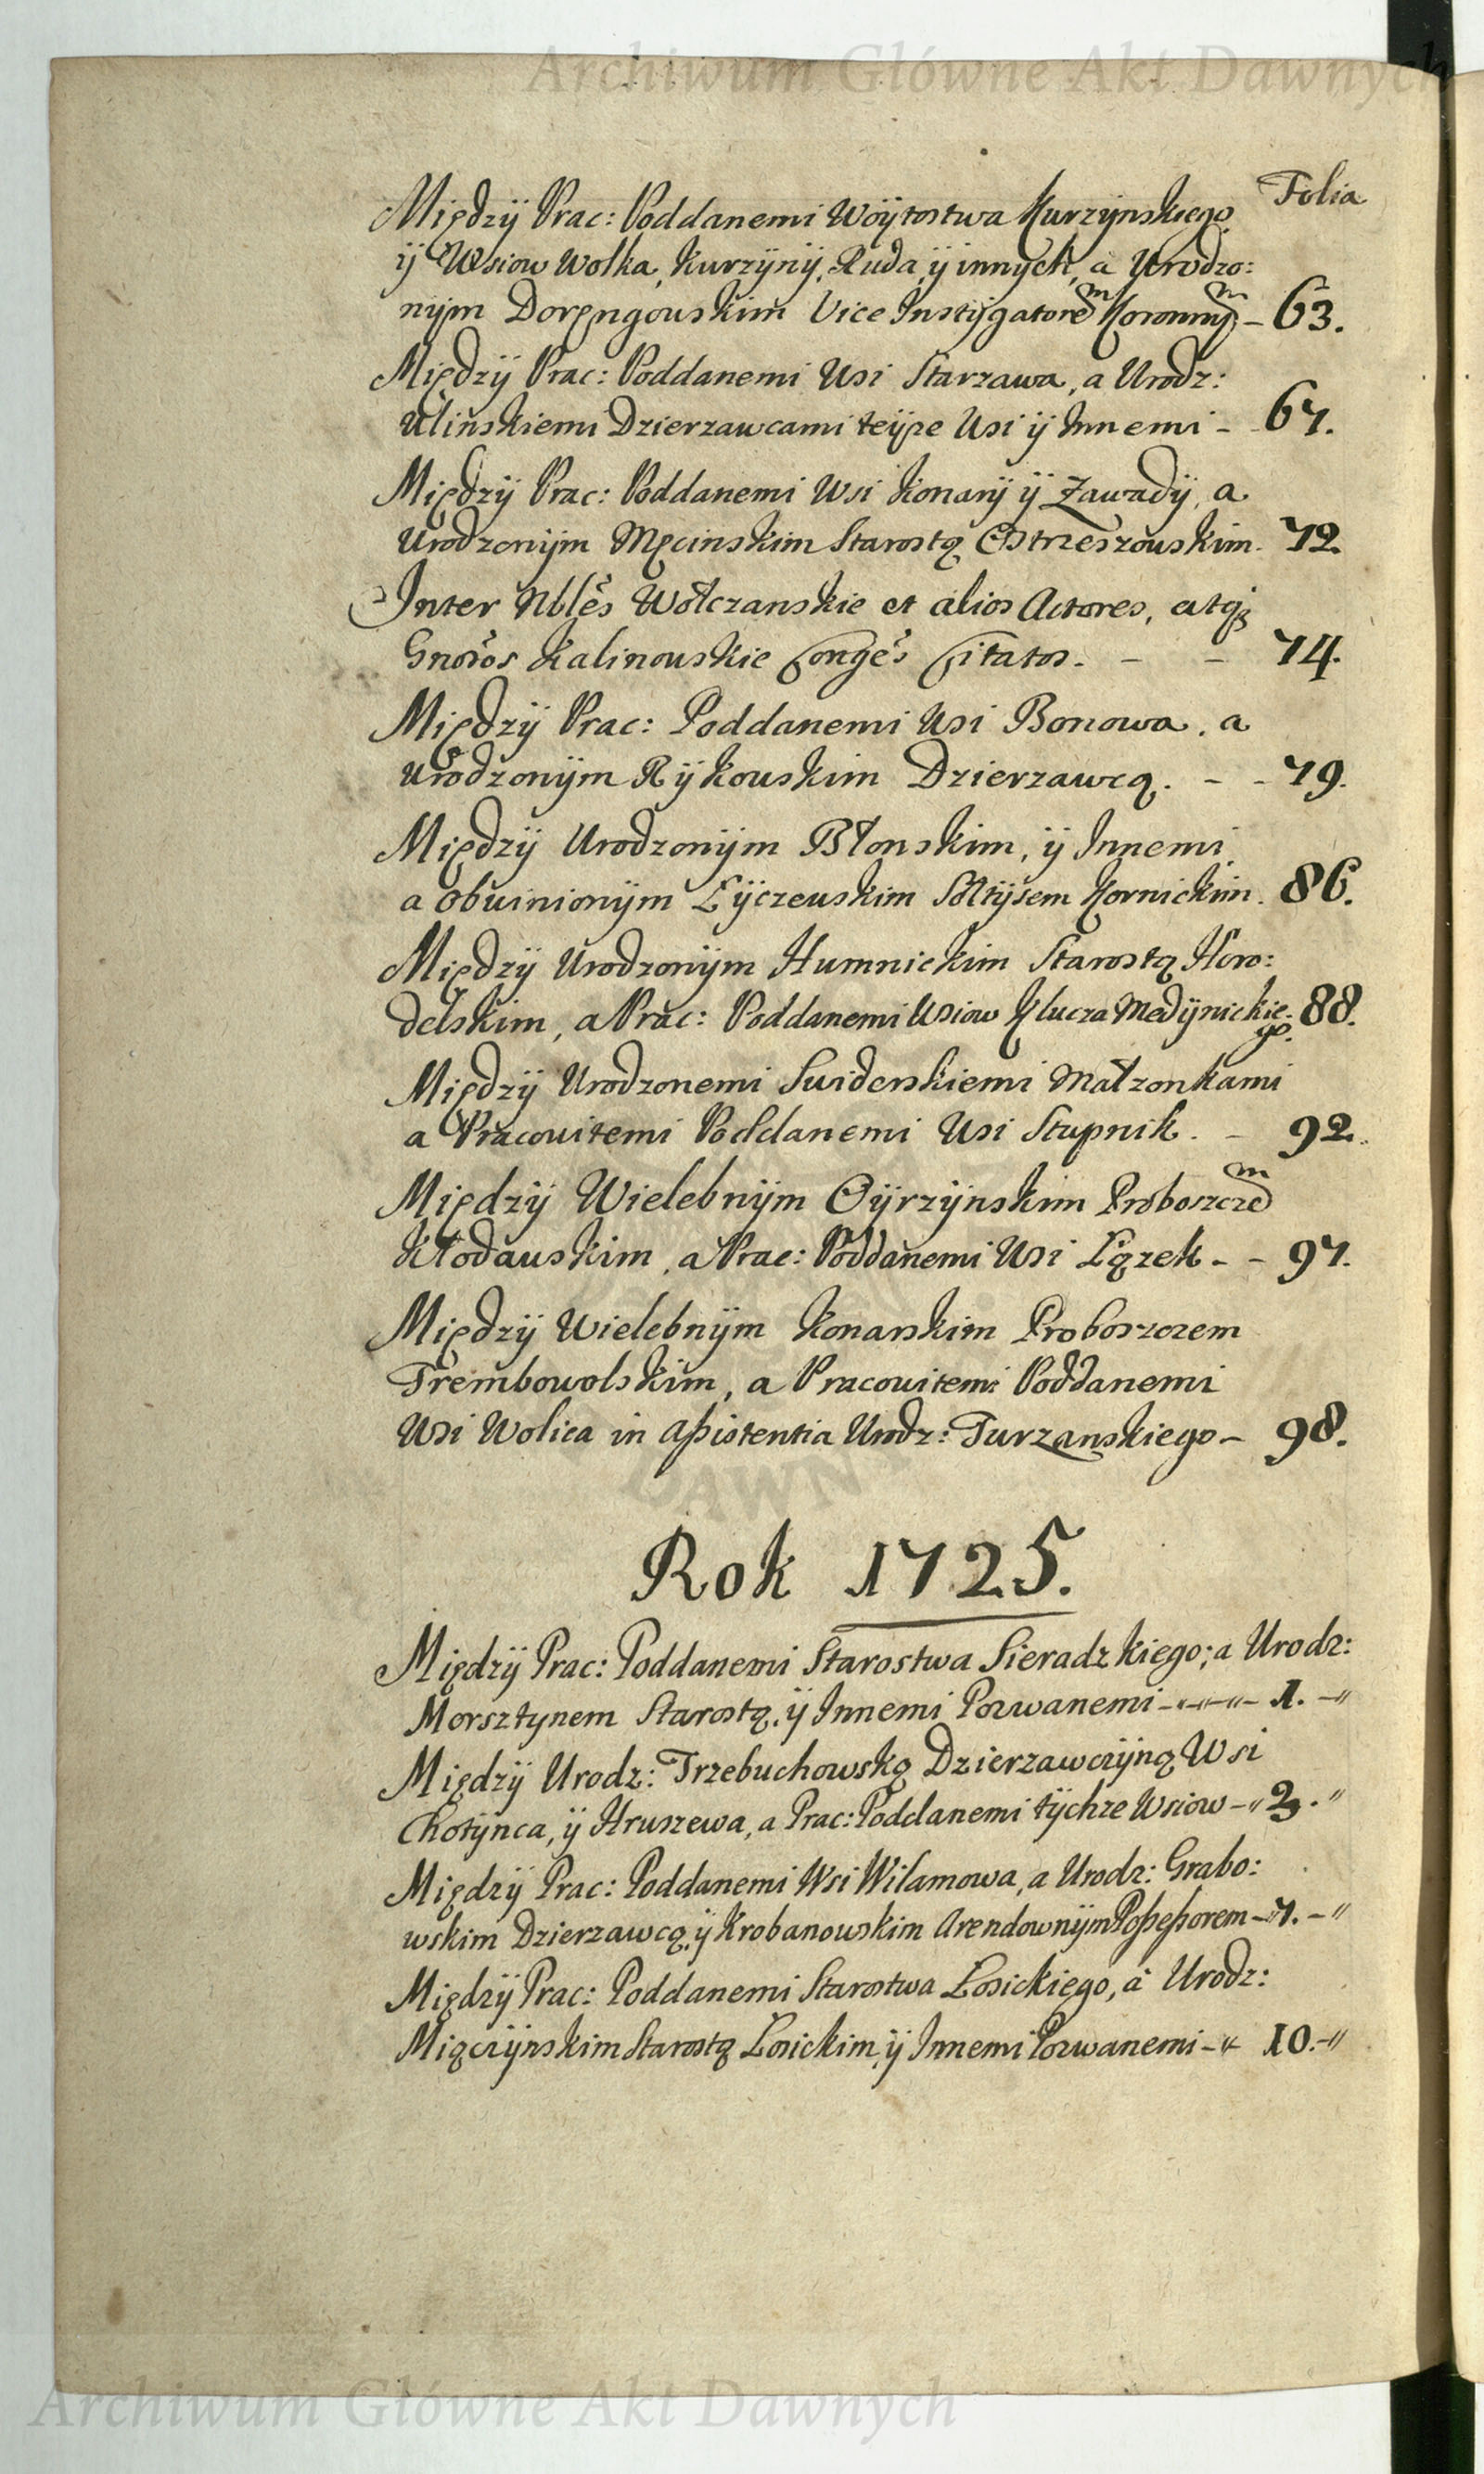 Archiwum Główne Akt Dawnych
Folia
Między Prac: Poddanemi Wóytostwa Kurzynskiego
ÿ Wsiow Wolka, Kurzÿnÿ, Ruda, ÿ innych, a Urodzo:
nÿm Doręngowskim Vice Instÿgatorem Koronnÿm – 63.
Międzÿ Prac: Poddanemi Wsi Starzawa, a Urodz:
Ulinskiemi Dzierzawcami teÿże Wsi ÿ Innemi – 67.
Międzÿ Prac: Poddanemi Wsi Konarÿ ÿ Zawadÿ, a
Urodzonÿm Męcinskim Starostą Ostrzeszowskim. 72.
Inter Nbles Wołczanskie et alios Actores, atq;
Gnosos Kalinowskie Conges Citatos. – – 74.
Międzÿ Prac: Poddanemi Wsi Bonowa, a
Urodzonÿm Rÿkowskim Dzierzawcą. – – 79.
Międzÿ Urodzonÿm Błonskim, ÿ Innemi,
a obwinionÿm Łÿczewskim Sołtÿsem Kornickim. 86.
Międzÿ Urodzonÿm Humnickim Starostą Horo:
delskim, a Prac: Poddanemi Wsiow Klucza Medÿnickie: 88.
go.
Międzÿ Urodzonemi Swiderskiemi Małzonkami
a Pracowitemi Poddanemi Wsi Stupnik. – 92.
Międzÿ Wielebnÿm Oÿrzÿnskim Proboszczem
Kłodawskim, a Prac: Poddanemi Wsi Łązek – – 97.
Międzÿ Wielebnÿm Konarskim Proboszczem
Trembowolskim, a Pracowitemi Poddanemi
Wsi Wolica in Aßistentia Urodz: Turzanskiego – 98.
Rok 1725.
Międzÿ Prac: Poddanemi Starostwa Sieradzkiego; a Urodz:
Morsztynem Starostą, ÿ Innemi Pozwanemi – 1. –"
Międzÿ Urodz: Trzebuchowską Dzierzawczÿną Wsi
Chotÿnca, ÿ Hruszewa, a Prac: Poddanemi tÿchze Wsiow –" . "
Międzÿ Prac: Poddanemi Wsi Wilamowa, a Urodz: Grabo:
wskim Dzierzawcą, ÿ Krobanowskim Arendownÿm Poßeßorem – 7. –"
Międzÿ Prac: Poddanemi Starostwa Łosickiego, a Urodz:
Miączÿnskim Starostą Łosickim, ÿ Innemi Pozwanemi –" 10. –"
Archiwum Główne Akt Dawnych